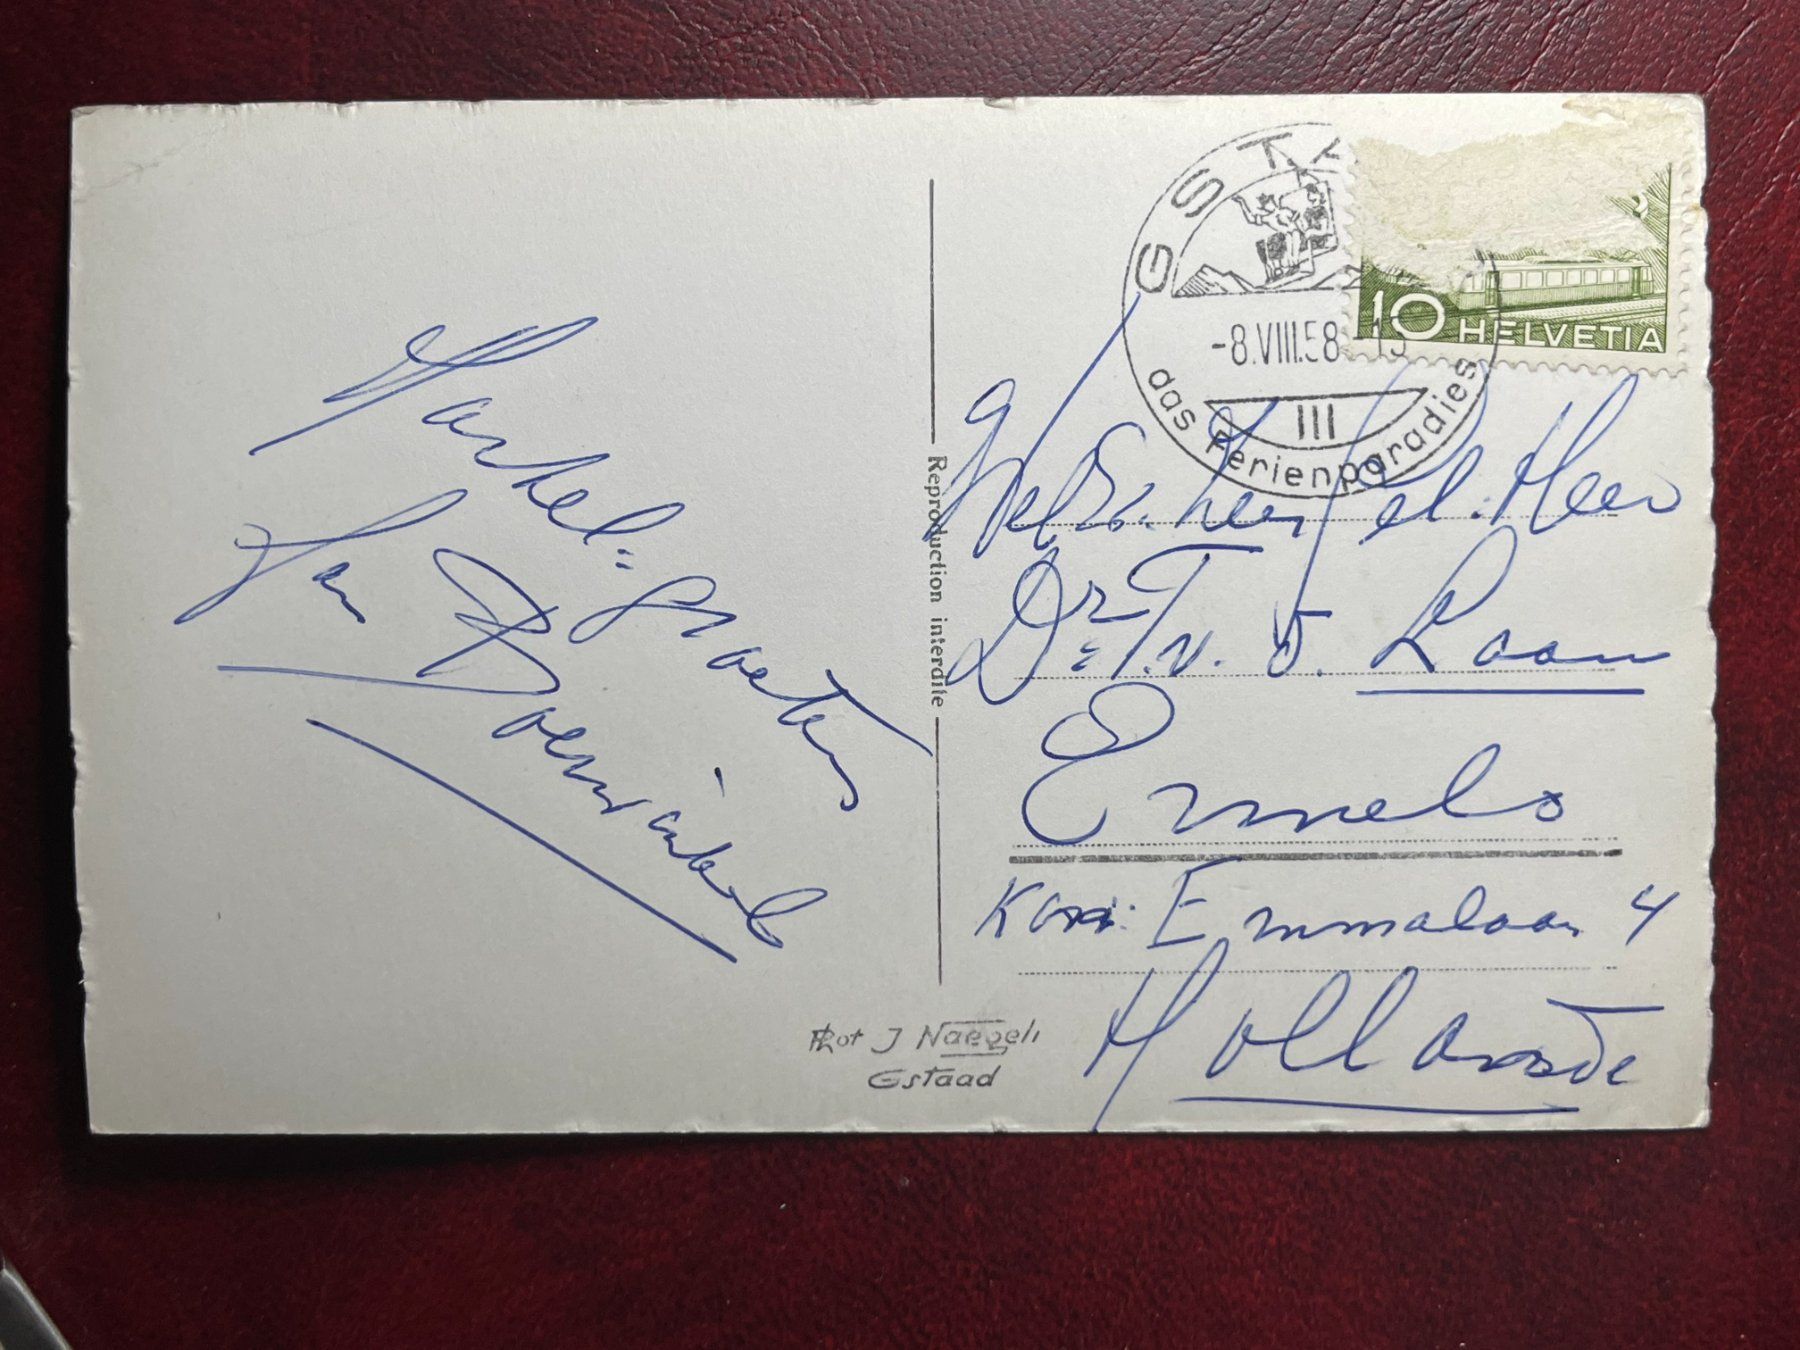 Hartel: groeten
Jan Boerwinkel
Reproduction interdite
Phot J Naegeli
Gstaad
GSTA
-8.VIII.58
III
das Ferienparadies
10 HELVETIA
Heer
Dr: T. v. d. Laan
Ermelo
Kon: Emmalaan 4
Hollande